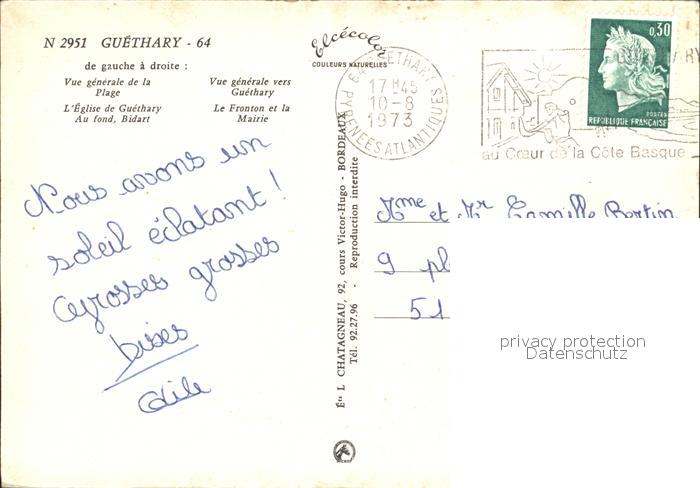 N 2951 GUÉTHARY - 64
de gauche à droite :
Vue générale de la
Plage
Vue générale vers
Guéthary
L'Église de Guéthary
Au fond, Bidart
Le Fronton et la
Mairie
Nous avons un
soleil éclatant !
Grosses grosses
bises
Odile
Elcécolor
COULEURS NATURELLES
Éts L CHATAGNEAU, 92, cours Victor-Hugo - BORDEAUX
Tél. 92.27.96 - Reproduction interdite
GUÉTHARY
17H45
10-8
1973
PYRENEES ATLANTIQUES
0,30
POSTES
REPUBLIQUE FRANÇAISE
au Cœur de la Côte Basque
Mme et Mr Camille Bertin
9 pl
51
privacy protection
Datenschutz